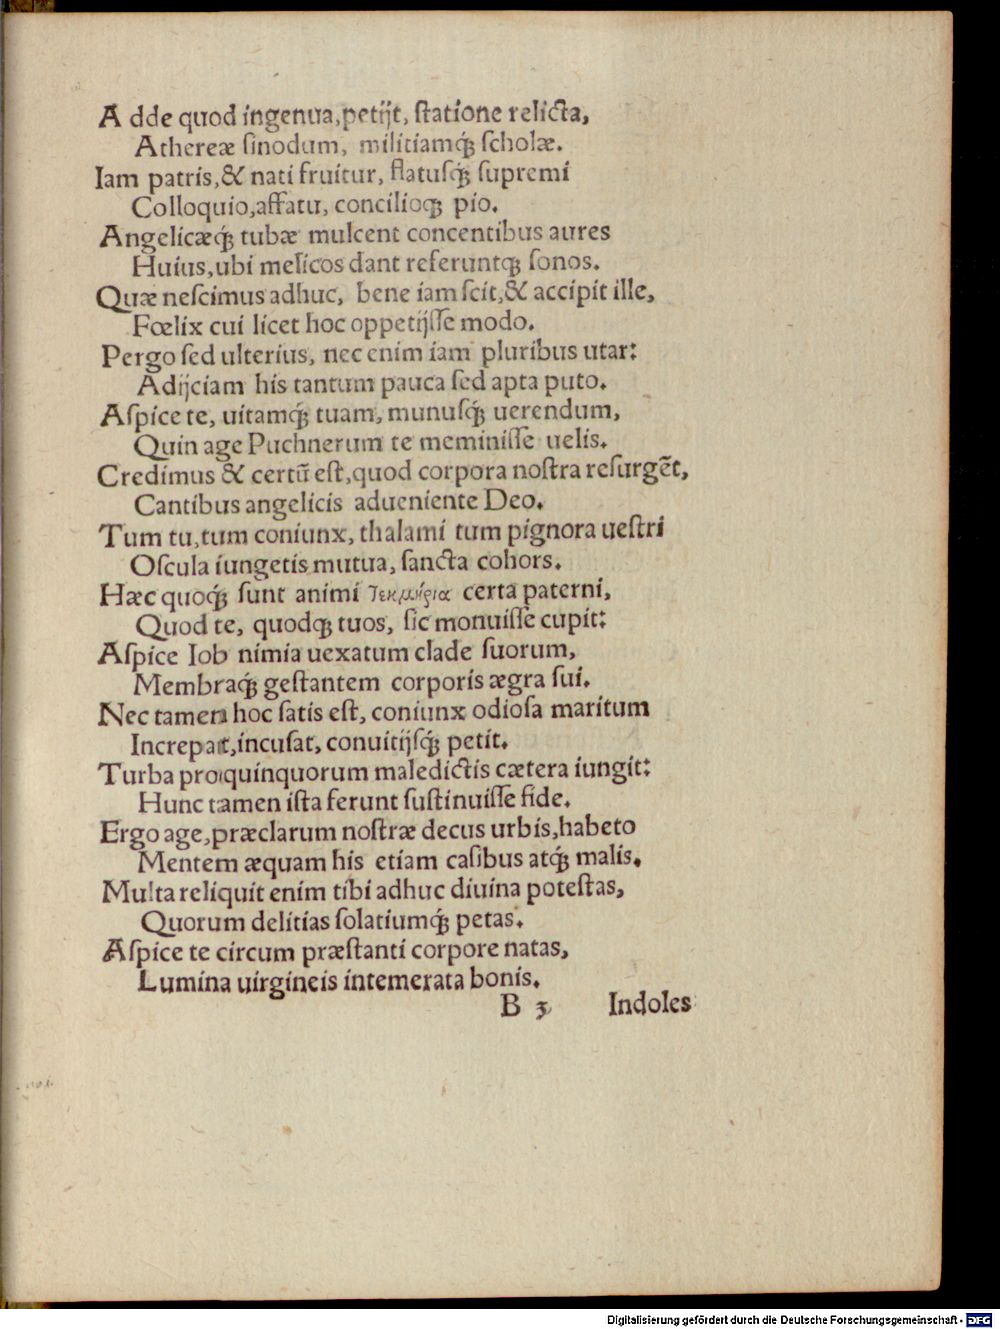 A dde quod ingenua,petijt, ſtatione relicta,
Athereæ ſinodum, militiamq́ꝫ ſcholæ.
Iam patris,& nati fruitur, flatuſq́ꝫ ſupremi
Colloquio,affatu, concilioqꝫ pio.
Angelicæq́ꝫ tubæ mulcent concentibus aures
Huius,ubi melicos dant referuntqꝫ ſonos.
Quæ neſcimus adhuc, bene iam ſcit,& accipit ille,
Fœlix cui licet hoc oppetijſſe modo.
Pergo ſed ulterius, nec enim iam pluribus utar:
Adijciam his tantum pauca ſed apta puto.
Aſpice te, uitamq́ꝫ tuam, munuſq́ꝫ uerendum,
Quin age Puchnerum te meminiſſe uelis.
Credimus & certũ eſt,quod corpora noſtra reſurgẽt,
Cantibus angelicis adueniente Deo.
Tum tu,tum coniunx, thalami tum pignora ueſtri
Oſcula iungetis mutua, ſancta cohors.
Hæc quoq́ꝫ ſunt animi τεκμήρια certa paterni,
Quod te, quodqꝫ tuos, ſic monuiſſe cupit:
Aſpice Iob nimia uexatum clade ſuorum,
Membraq́ꝫ geſtantem corporis ægra ſui.
Nec tamen hoc ſatis eſt, coniunx odioſa maritum
Increpat,incuſat, conuitijſq́ꝫ petit.
Turba proquinquorum maledictis cætera iungit:
Hunc tamen iſta ferunt ſuſtinuiſſe fide.
Ergo age,præclarum noſtræ decus urbis,habeto
Mentem æquam his etiam caſibus atq́ꝫ malis.
Multa reliquit enim tibi adhuc diuina poteſtas,
Quorum delitias ſolatiumq́ꝫ petas.
Aſpice te circum præſtanti corpore natas,
Lumina uirgineis intemerata bonis.
B 3 Indoles
Digitalisierung gefördert durch die Deutsche Forschungsgemeinschaft - DFG